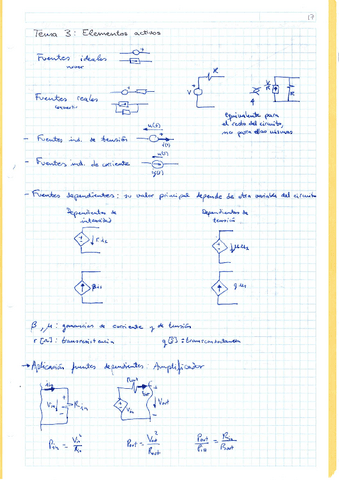 Tema 3: Elementos activos
Fuentes ideales
Fuentes reales
V
R
equivalente para
el resto del circuito,
no para ellas mismas
- Fuentes ind. de tensión
u(t)
i(t)
- Fuentes ind. de corriente
u(t)
ig(t)
- Fuentes dependientes: su valor principal depende de otra variable del circuito
Dependientes de
intensidad
Dependientes de
tensión
β, μ: ganancias de corriente y de tensión
r [Ω]: transresistencia
→ Aplicación fuentes dependientes: Amplificador
Vin
Rin
Vin
Rout
Vout
Pin = Vin²/Rin
Pout = Vout²/Rout
Pout/Pin = Rin/Rout